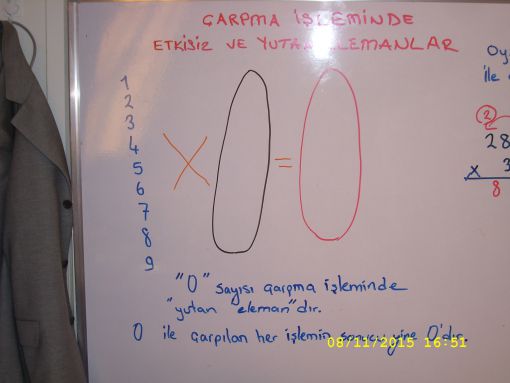 ÇARPMA İŞLEMİNDE
ETKİSİZ VE YUTAN ELEMANLAR
1
2
3
4
5
6
7
8
9
X 0 = 0
"0" sayısı çarpma işleminde
"yutan eleman"dır.
0 ile çarpılan her işlemin sonucu yine 0'dır.
08/11/2015 16:51
Oy
ile
2
28
x 3
8